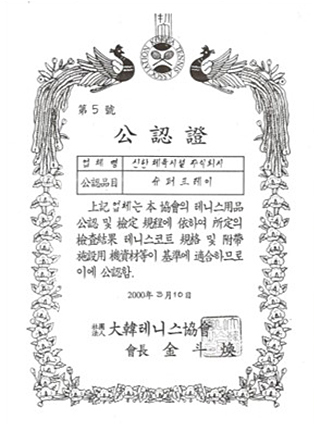 KOREA TENNIS ASSOCIATION
第5號
公認證
업체명 신한체육시설 주식회사
公認品目 슈퍼크레이
上記 업체는 本 協會의 테니스用品
公認 및 檢定 規程에 依하여 所定의
檢査結果 테니스코트 規格 및 附帶
施設用 機資材等이 基準에 適合하므로
이에 公認함.
2000年 3月 10日
社團法人 大韓테니스協會
會長 金斗煥